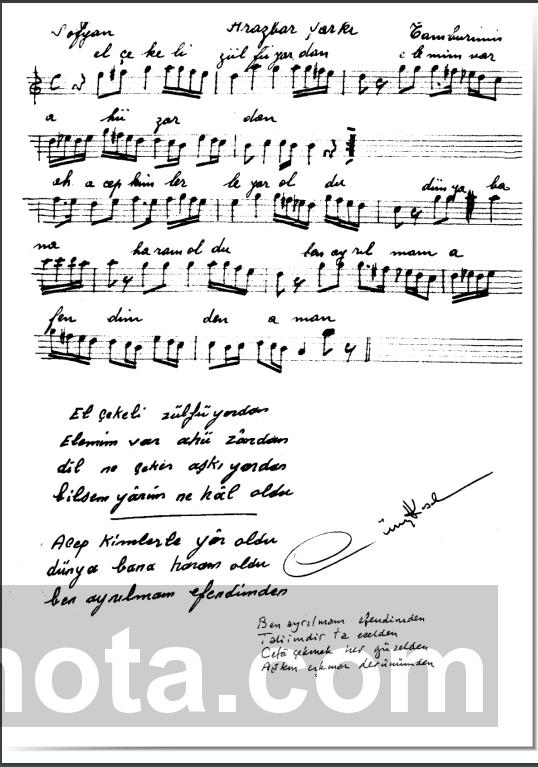 Sofyan Arazbar Şarkı Tamburimis
el çe ke li zül fü yar dan e le mim var
a hü zar dan
ah a cep kim ler le yar ol du dün ya ba
na ha ram ol du ben ay rıl mam a
fen dim den a man
El çekeli zülfü yardan
Elemim var ahü zârdan
dil ne çeker aşkı yardan
bilsem yârim ne hâl oldu
Acep kimlerle yâr oldu
dünya bana haram oldu
ben ayrılmam efendimden
Ben ayrılmam efendimden
Talimdir ta ezelden
Cefa çekmek her güzelden
Aşkın çıkmaz derûnumden
nota.com